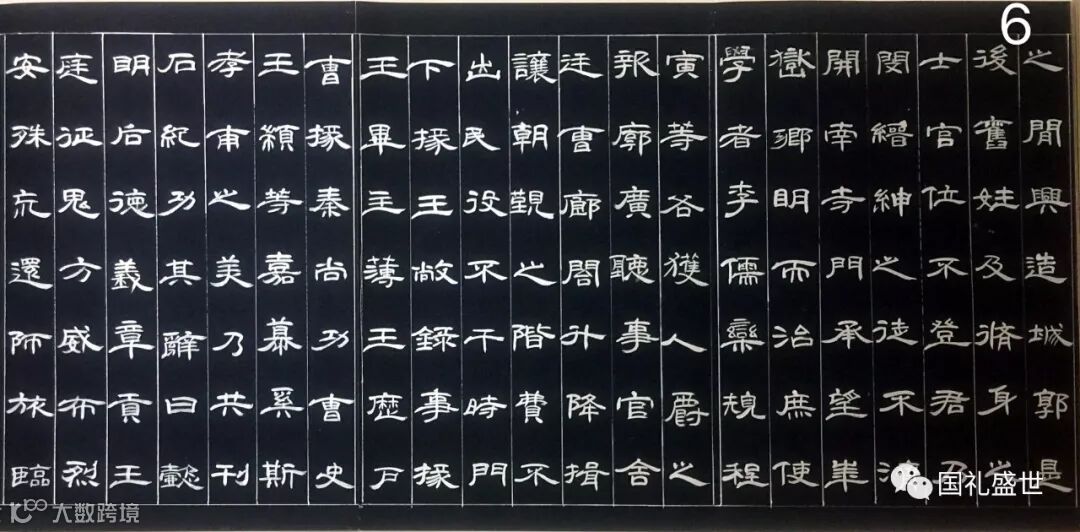 6
之間興造城郭是
後舊姓及脩身之
士官位不登君乃
閔縉紳之徒不濟
開南寺門承望華
嶽鄉明而治庶使
學者李儒欒規程
寅等各獲人爵之
報廓廣聽事官舍
廷曹廊閣升降揖
讓朝覲之階費不
出民役不干時門
下掾王敞錄事掾
王畢主薄王歷戶
曹掾秦尚功曹史
王顓等嘉慕奚斯
考甫之美乃共刊
石紀功其辭曰懿
明后德義章貢王
庭征鬼方威布烈
安殊荒還師旅臨
国礼盛世
大数跨境